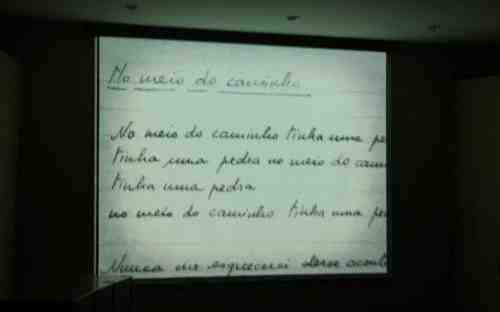 No meio do caminho
No meio do caminho tinha uma pe
tinha uma pedra no meio do cam
tinha uma pedra
no meio do caminho tinha uma pe
Nunca me esquecerei desse acont